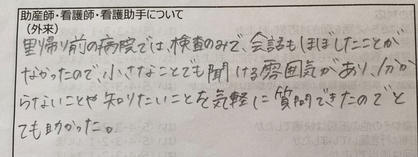 助産師・看護師・看護助手について
(外来)
里帰り前の病院では、検査のみで、会話もほぼしたことが
なかったので、小さなことでも聞ける雰囲気があり、分か
らないことや知りたいことを気軽に質問できたのでと
ても助かった。